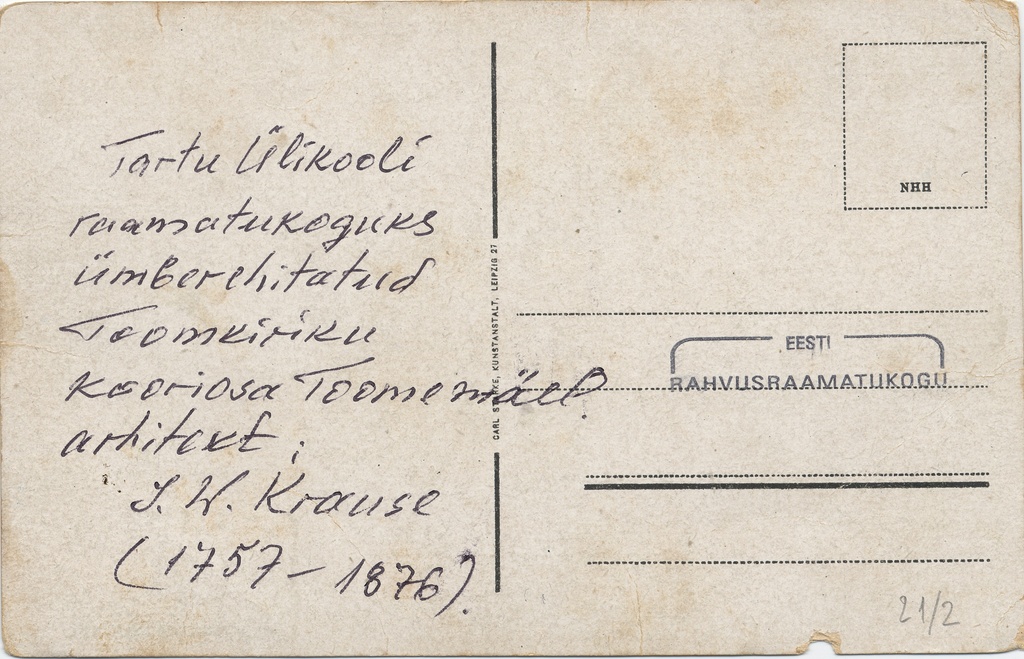 Tartu Ülikooli
raamatukoguks
ümberehitatud
Toomkiriku
kooriosa Toomemäel.
arhitekt:
J. W. Krause
(1757 – 1876).
KUNSTANSTALT, LEIPZIG 27
NHH
EESTI
RAHVUSRAAMATUKOGU
21/2